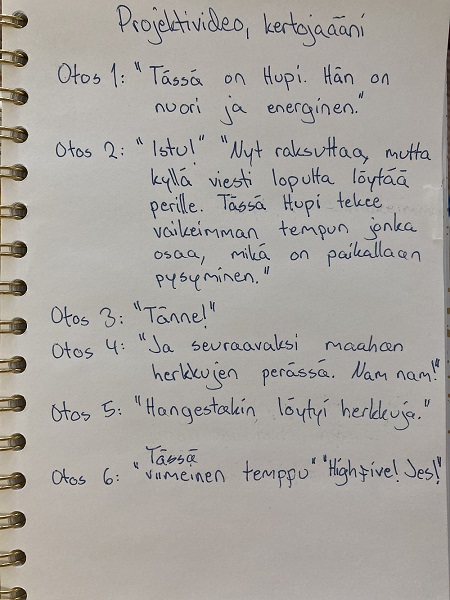 Projektivideo, kertojaääni
Otos 1: "Tässä on Hupi. Hän on
nuori ja energinen."
Otos 2: "Istu!" "Nyt raksuttaa, mutta
kyllä viesti lopulta löytää
perille. Tässä Hupi tekee
vaikeimman tempun jonka
osaa, mikä on paikallaan
pysyminen."
Otos 3: "Tänne!"
Otos 4: "Ja seuraavaksi maahan
herkkujen perässä. Nam nam!"
Otos 5: "Hangestakin löytyi herkkuja."
Tässä
Otos 6: "viimeinen temppu" "High five! Jes!"